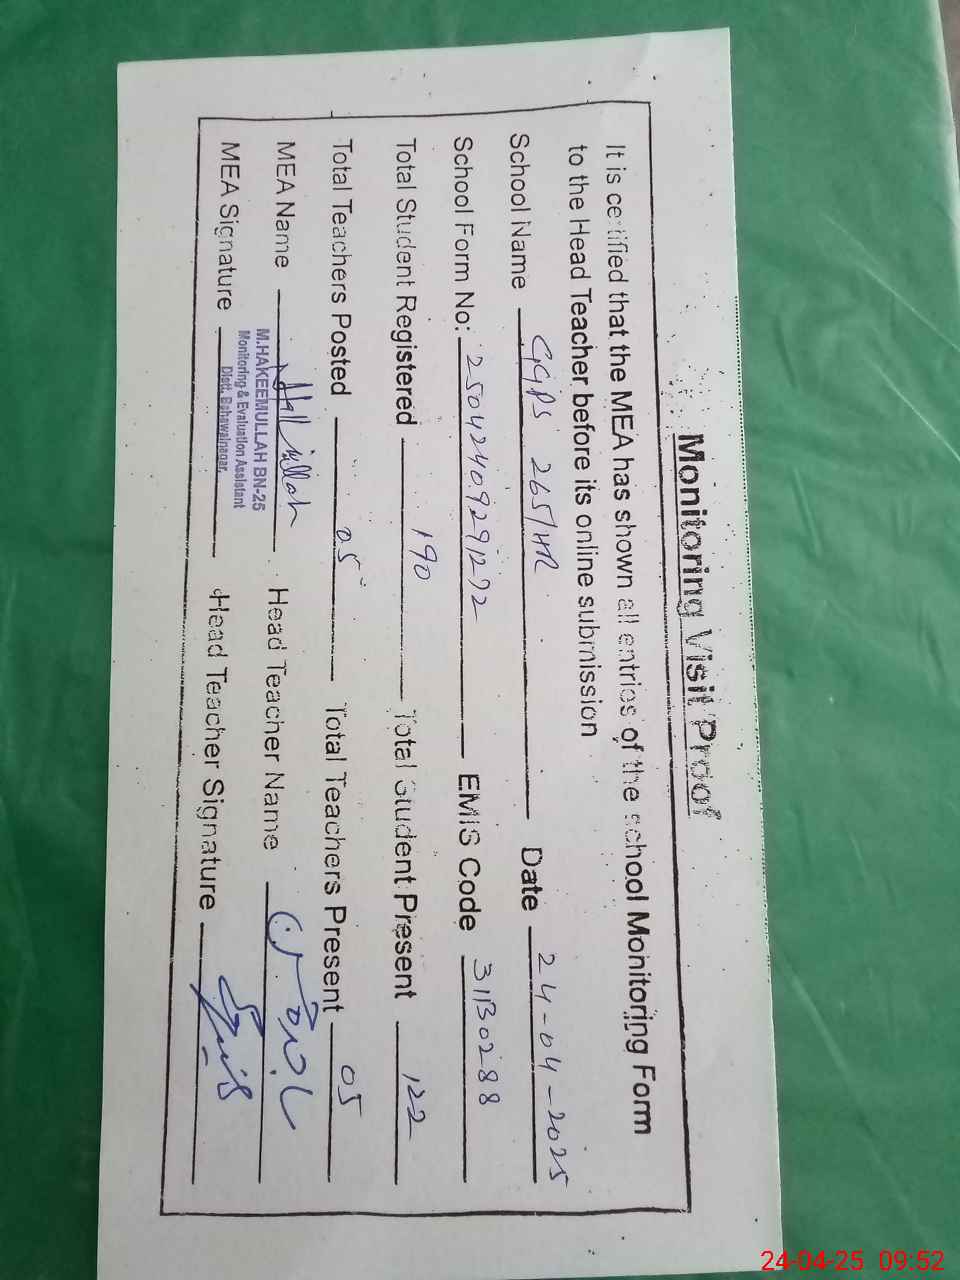 Monitoring Visit Proof
It is certified that the MEA has shown all entries of the school Monitoring Form
to the Head Teacher before its online submission
School Name GGPS 265/HR Date 24-04-2025
School Form No: 25042409291272 EMIS Code 31130288
Total Student Registered 190 Total Student Present 122
Total Teachers Posted 05 Total Teachers Present 05
MEA Name Head Teacher Name
M.HAKEEMULLAH BN-25
Monitoring & Evaluation Assistant
Distt. Bahawalnagar.
MEA Signature Head Teacher Signature
24-04-25 09:52